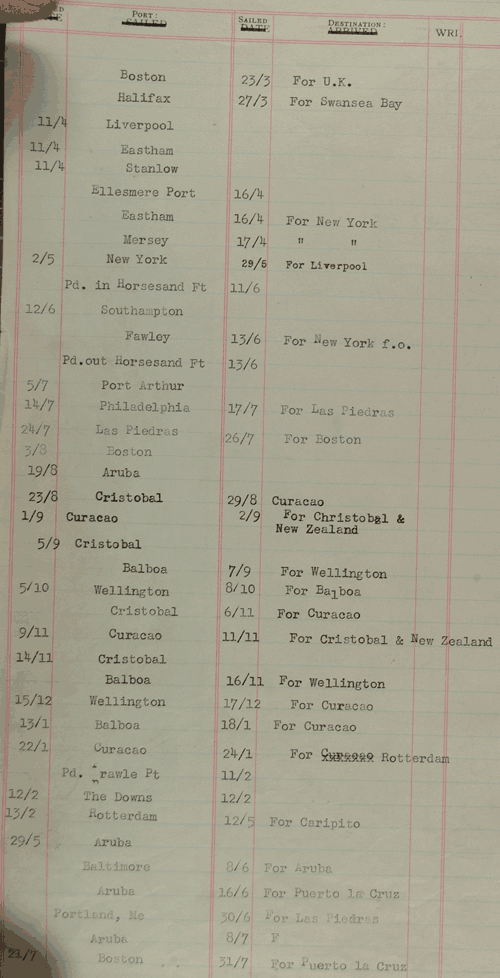 PORT: SAILED DATE DESTINATION: WRI.
SAILED DATE ARRIVED
Boston 23/3 For U.K.
Halifax 27/3 For Swansea Bay
11/4 Liverpool
11/4 Eastham
11/4 Stanlow
Ellesmere Port 16/4
Eastham 16/4 For New York
Mersey 17/4 " "
2/5 New York 29/5 For Liverpool
Pd. in Horsesand Ft 11/6
12/6 Southampton
Fawley 13/6 For New York f.o.
Pd.out Horsesand Ft 13/6
5/7 Port Arthur
14/7 Philadelphia 17/7 For Las Piedras
24/7 Las Piedras 26/7 For Boston
3/8 Boston
19/8 Aruba
23/8 Cristobal 29/8 Curacao
1/9 Curacao 2/9 For Christobal &
New Zealand
5/9 Cristobal
Balboa 7/9 For Wellington
5/10 Wellington 8/10 For Balboa
Cristobal 6/11 For Curacao
9/11 Curacao 11/11 For Cristobal & New Zealand
14/11 Cristobal
Balboa 16/11 For Wellington
15/12 Wellington 17/12 For Curacao
13/1 Balboa 18/1 For Curacao
22/1 Curacao 24/1 For Curacao Rotterdam
Pd. rawle Pt 11/2
12/2 The Downs 12/2
13/2 Rotterdam 12/5 For Caripito
29/5 Aruba
Baltimore 8/6 For Aruba
Aruba 16/6 For Puerto la Cruz
Portland, Me 30/6 For Las Piedras
Aruba 8/7 F
23/7 Boston 31/7 For Puerto la Cruz